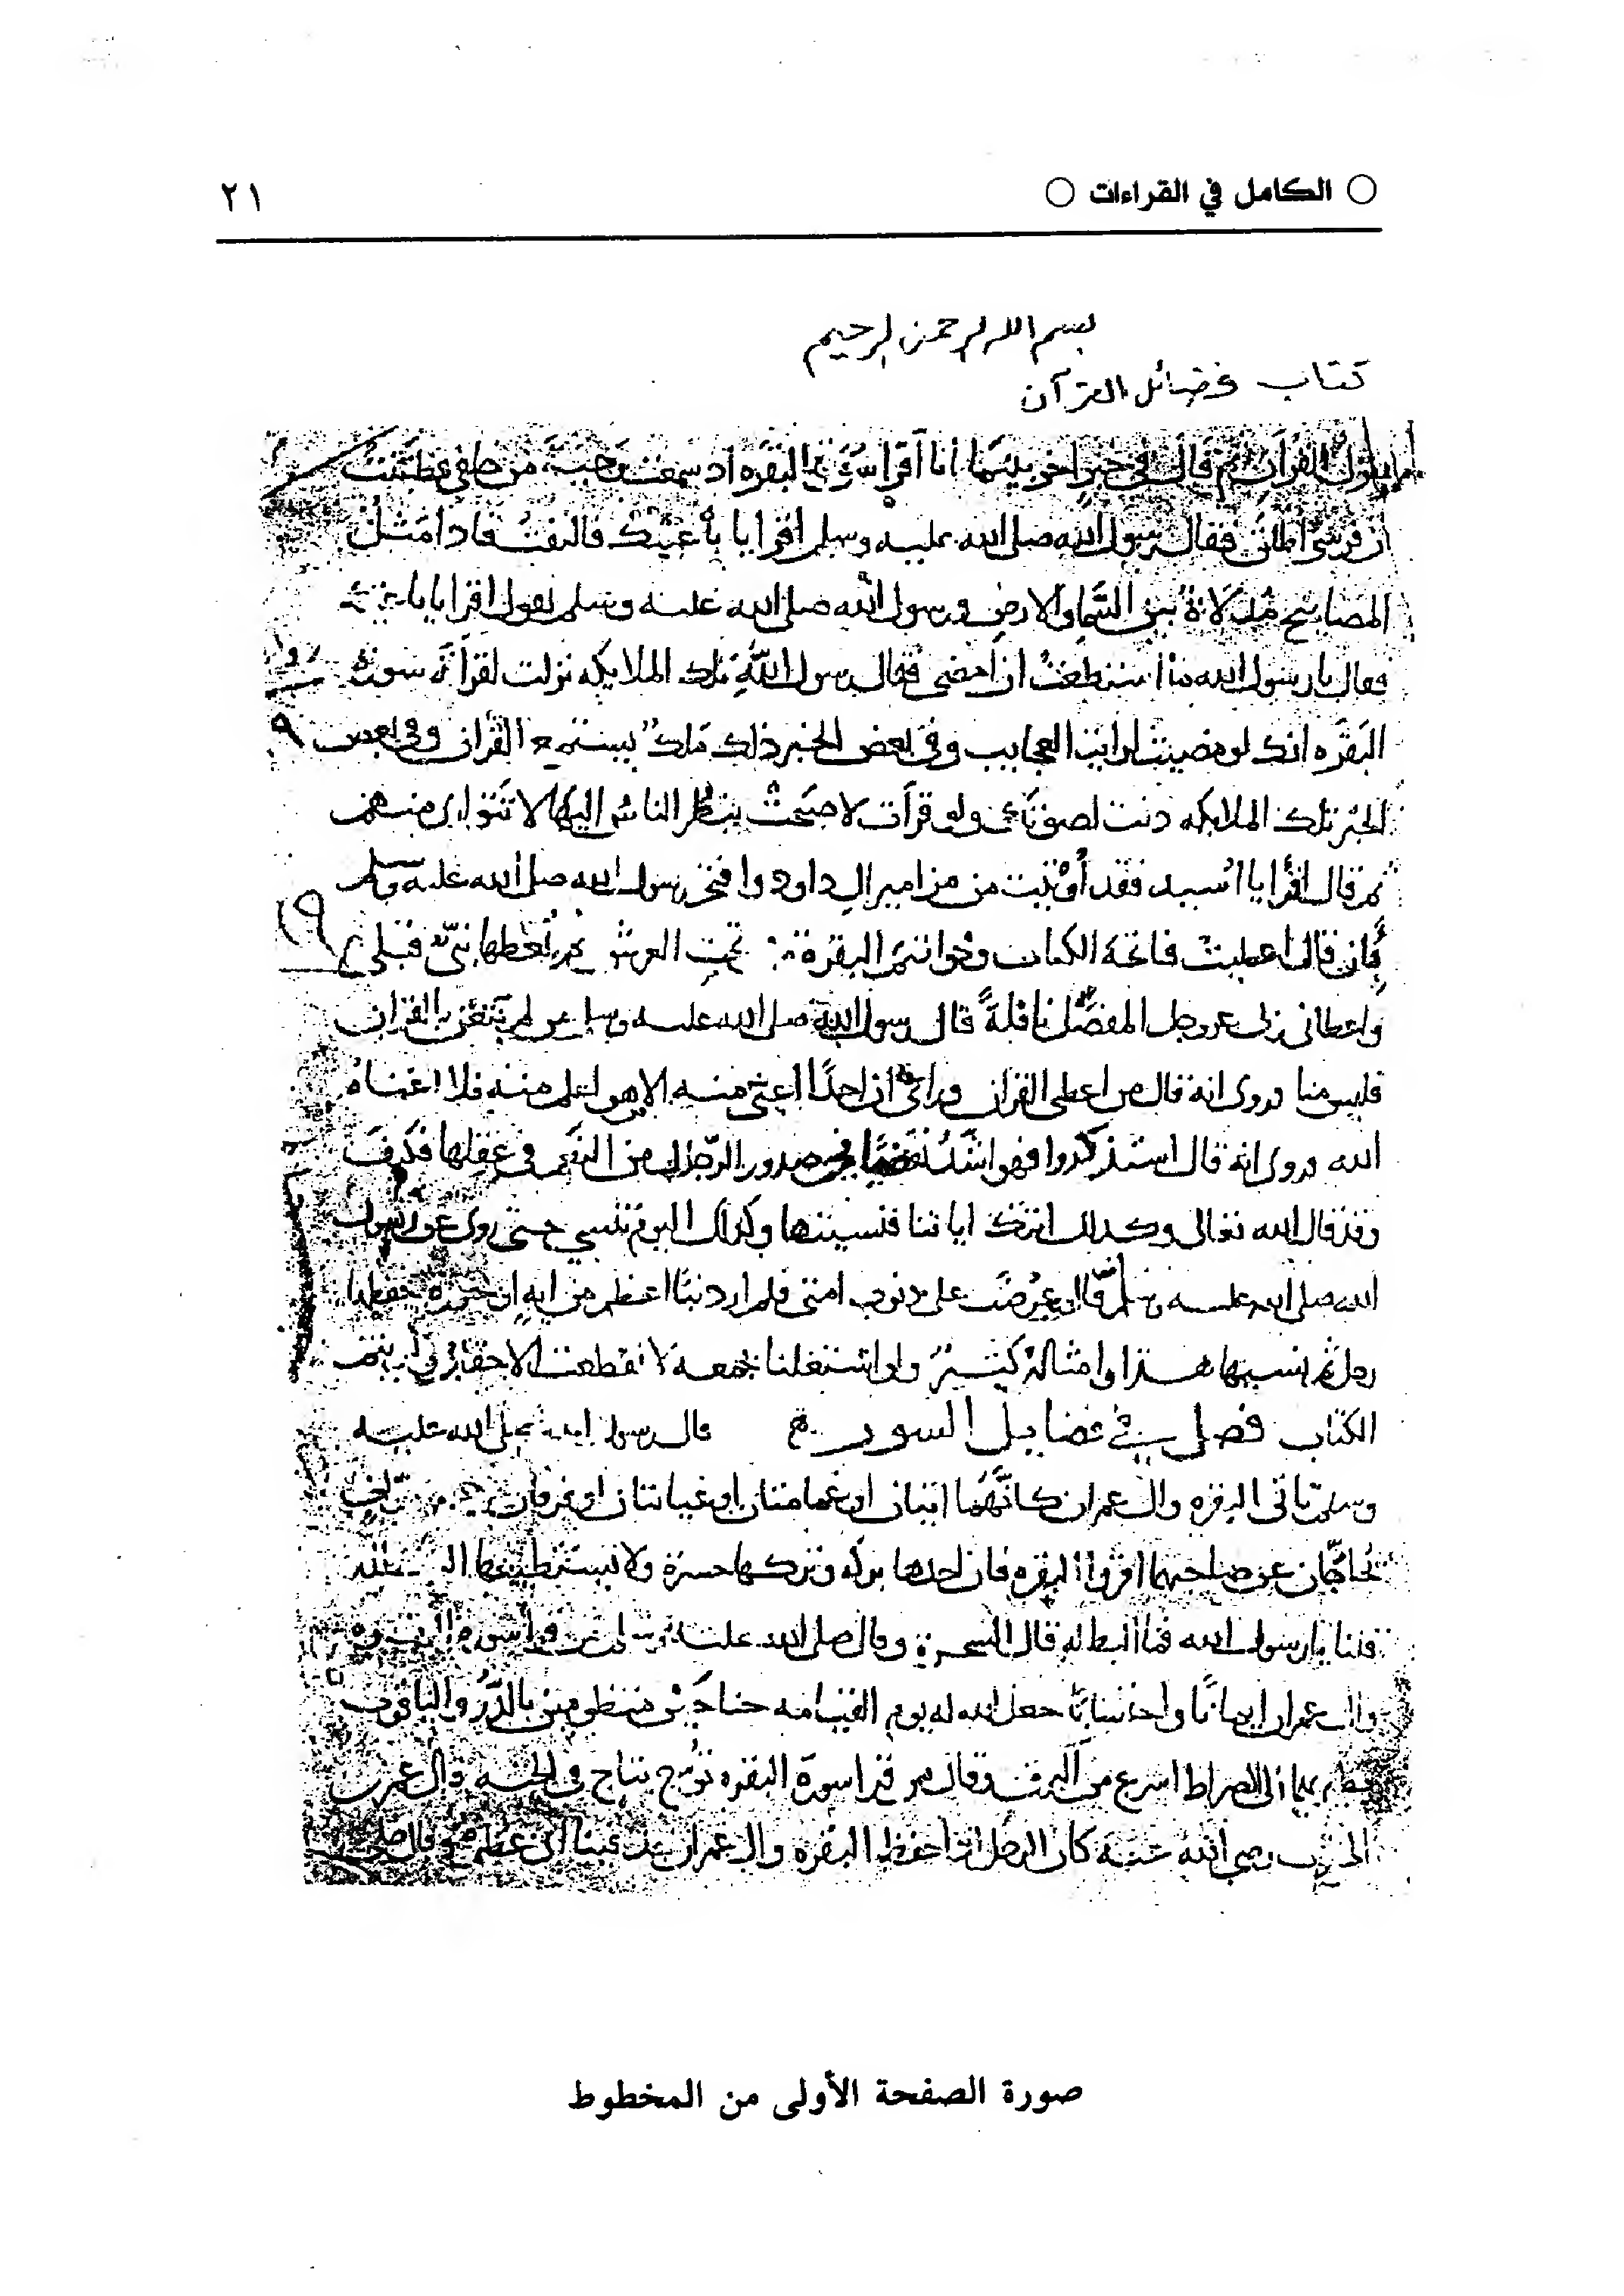 ○ الكامل في القراءات ○ ٢١
بسم الله الرحمن الرحيم
كتاب فضائل القرآن
القرآن ثم قال في خبر اخر بينما أنا أقرأ سورة البقره اذ سمعت وجبة من خلفي فظننت
ان فرسي اطلق فقال رسول الله صلى الله عليه وسلم اقرا يا با عتيك فالتفت فاذا مثل
المصابيح مدلاة بين السما والارض ورسول الله صلى الله عليه وسلم يقول اقرا يا با
فقال يا رسول الله ما استطعت ان امضى فقال رسول الله تلك الملايكه نزلت لقراة سورة
البقره انك لو مضيت لرايت العجايب وفي بعض الخبر ذلك ملك يستمع القران وفي بعض
الخبر تلك الملايكه دنت لصوتك ولو قرات لاصبحت ينظر الناس اليها لا تتوارى منهم
ثم قال اقرا يا اسيد فقد أوتيت من مزامير ال داود وافتخر رسول الله صلى الله عليه وسلم
بأن قال اعطيت فاتحة الكتاب وخواتيم البقرة من تحت العرش لم يعطها نبي قبلي
واعطاني ربي عز وجل المفصل نافلةً قال رسول الله صلى الله عليه وسلم من لم يتغن بالقران
فليس منا وروى انه قال من اعطى القران وراى ان احدًا اغنى منه الا هو اعلم منه فلا اغناه
الله وروى انه قال استذكروا فهو اشد تفصيا في صدور الرجال من النعم في عقلها فكيف
وقد قال الله تعالى وكذلك اتتك اياتنا فنسيتها وكذلك اليوم تنسى حتى روى عن رسول
الله صلى الله عليه وسلم قال عرضت على ذنوب امتي فلم ار ذنبًا اعظم من ايه او سورة حفظها
رجل ثم نسيها هذا وامثاله كثير ولو اشتغلنا بجمعه لانقطعت الاحقاب ولم يتم
الكتاب فصل في فضايل السور قال رسول الله صلى الله عليه
وسلم تاتى البقره وال عمران كانهما اثنان او غمامتان او غيايتان او فرقان من
تحاجان عن صاحبهما اقروا البقره فان اخذها بركه وتركها حسرة ولا تستطيعها البطله
قلنا يا رسول الله فما البطله قال السحرة وقال صلى الله عليه وسلم من قرأ سورة البقره
وال عمران ايمانًا واحتسابًا جعل الله له يوم القيامه جناحين منظومين بالدر والياقوت
على الصراط اسرع من البرق وقال من قرا سورة البقره توج بتاج في الجنه وقال عمر بن
الخطاب رضي الله عنه كان الرجل اذا حفظ البقره وال عمران عد فينا
صورة الصفحة الأولى من المخطوط